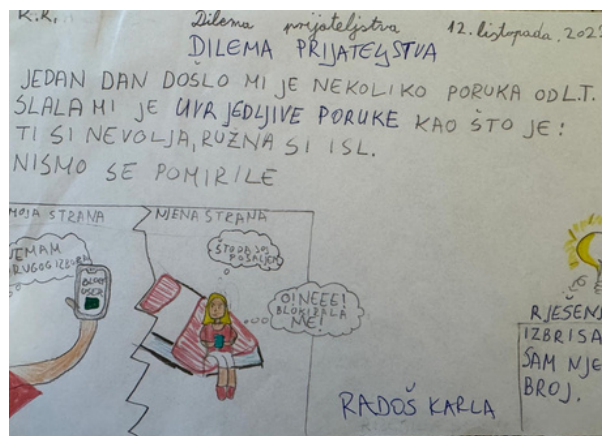 K.K.
Dilema prijateljstva
12. listopada. 202
DILEMA PRIJATELJSTVA
JEDAN DAN DOŠLO MI JE NEKOLIKO PORUKA OD L.T.
SLALA MI JE UVRJEDLJIVE PORUKE KAO ŠTO JE:
TI SI NEVOLJA, RUŽNA SI ISL.
NISMO SE POMIRILE
MOJA STRANA
NJENA STRANA
NEMAM
DRUGOG IZBORA
BLOCK
USER
ŠTO DA JOJ
POŠALJEM
O! NEEE!
BLOKIRALA
ME!
RJEŠENJ
IZBRISA
SAM NJE
BROJ.
RADOŠ KARLA